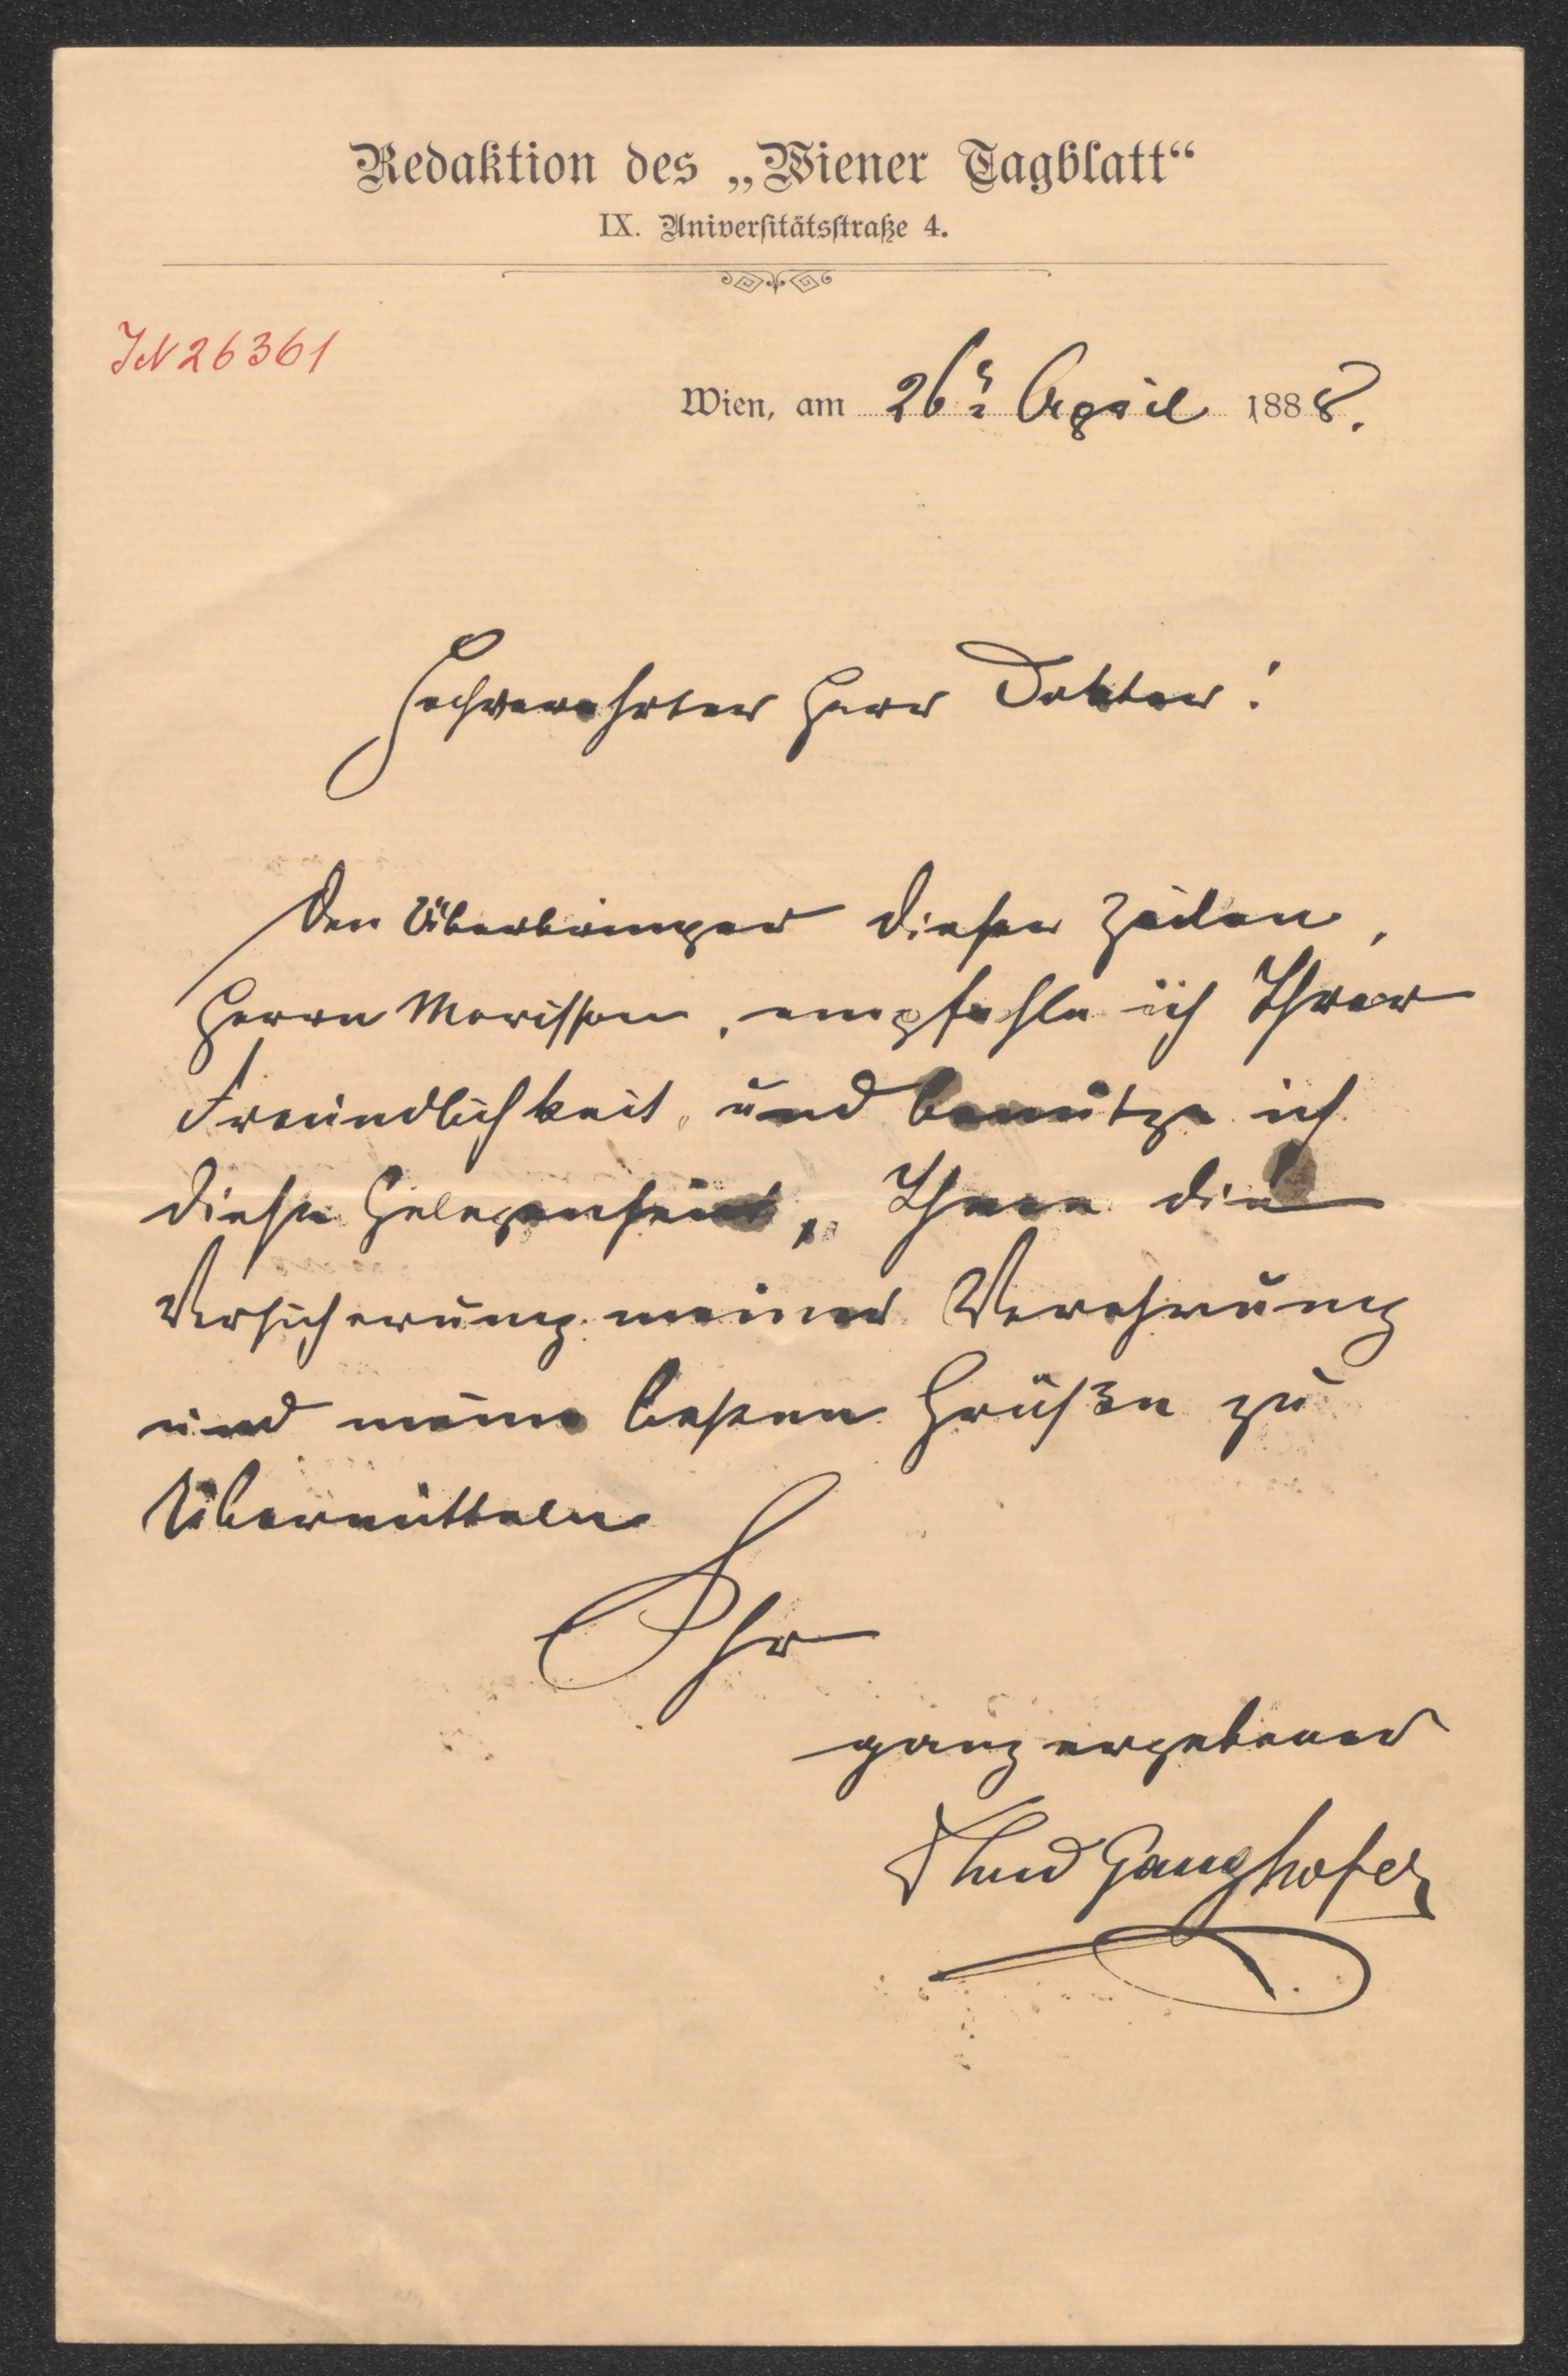 Redaktion des „Wiener Tagblatt“
IX. Universitätsstraße 4.
IN 26361
Wien, am 26ᵗ April 1888.
Hochverehrter Herr Doktor!
Den Überbringer dieser Zeilen,
Herrn Morisson, empfehle ich Ihrer
Freundlichkeit, und benütze ich
diese Gelegenheit, Ihnen die
Versicherung meiner Verehrung
und meine besten Grüße zu
übermitteln
Ihr
ganz ergebener
Ganghofer